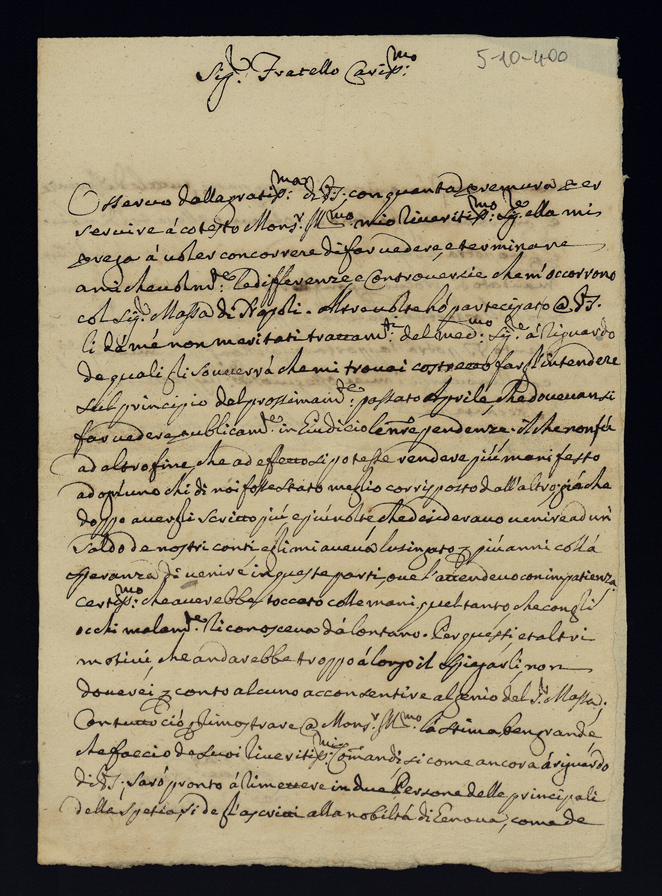 5-10-400
Sig.r Fratello Cariss.mo
Osservo dalla gratiss.ma di V.S: con quanta premura per
servire á cotesto Mons.r Ill.mo mio riveritiss.mo Sig.re ella mi
prega á voler concorrere di far vedere, e terminare
amichevolm.te le differenze, e Controversie che m'occorrono
col Sig.r Massa di Napoli. Altre volte hó partecipato a V.S:
li dá mé non meritati trattam.ti del med.mo Sig.re á riguardo
de quali gli sovverrá che mi trovai costretto far l'intendere
sul principio del prossimam.te passato Aprile, che dovevansi
far vedere publicam.te in Giudicio le nre pendenze. il che non fú
ad altro fine, che ad effetto si potesse rendere piú manifesto
ad ogn'uno chi di noi fosse stato meglio corrisposto dall'altro, giá che
doppo avergli scritto piú e piú volte che desideravo venire ad un
saldo de nostri conti egli mi aveva lusingato p piú anni colla
speranza di venire in queste parti, ove l'attendevo con impatienza
certiss.mo che averebbe toccato colle mani, quel tanto che con gli
occhi malam.te li conosceva dá lontano. Per questi et altri
motivi, che andarebbe troppo á longo il spiegarli non
doverei p conto alcuno acconsentire al genio del S.r Massa;
Con tutto ció p dimostrare a Mons.r Ill.mo la stima ben grande
che faccio de suoi riveritiss.mi Comandi, si come ancora á riguardo
di V.S: saró pronto á rimettere in due Persone delle principali
della spetiasi de l'ascritti alla nobiltá di Genova, come de